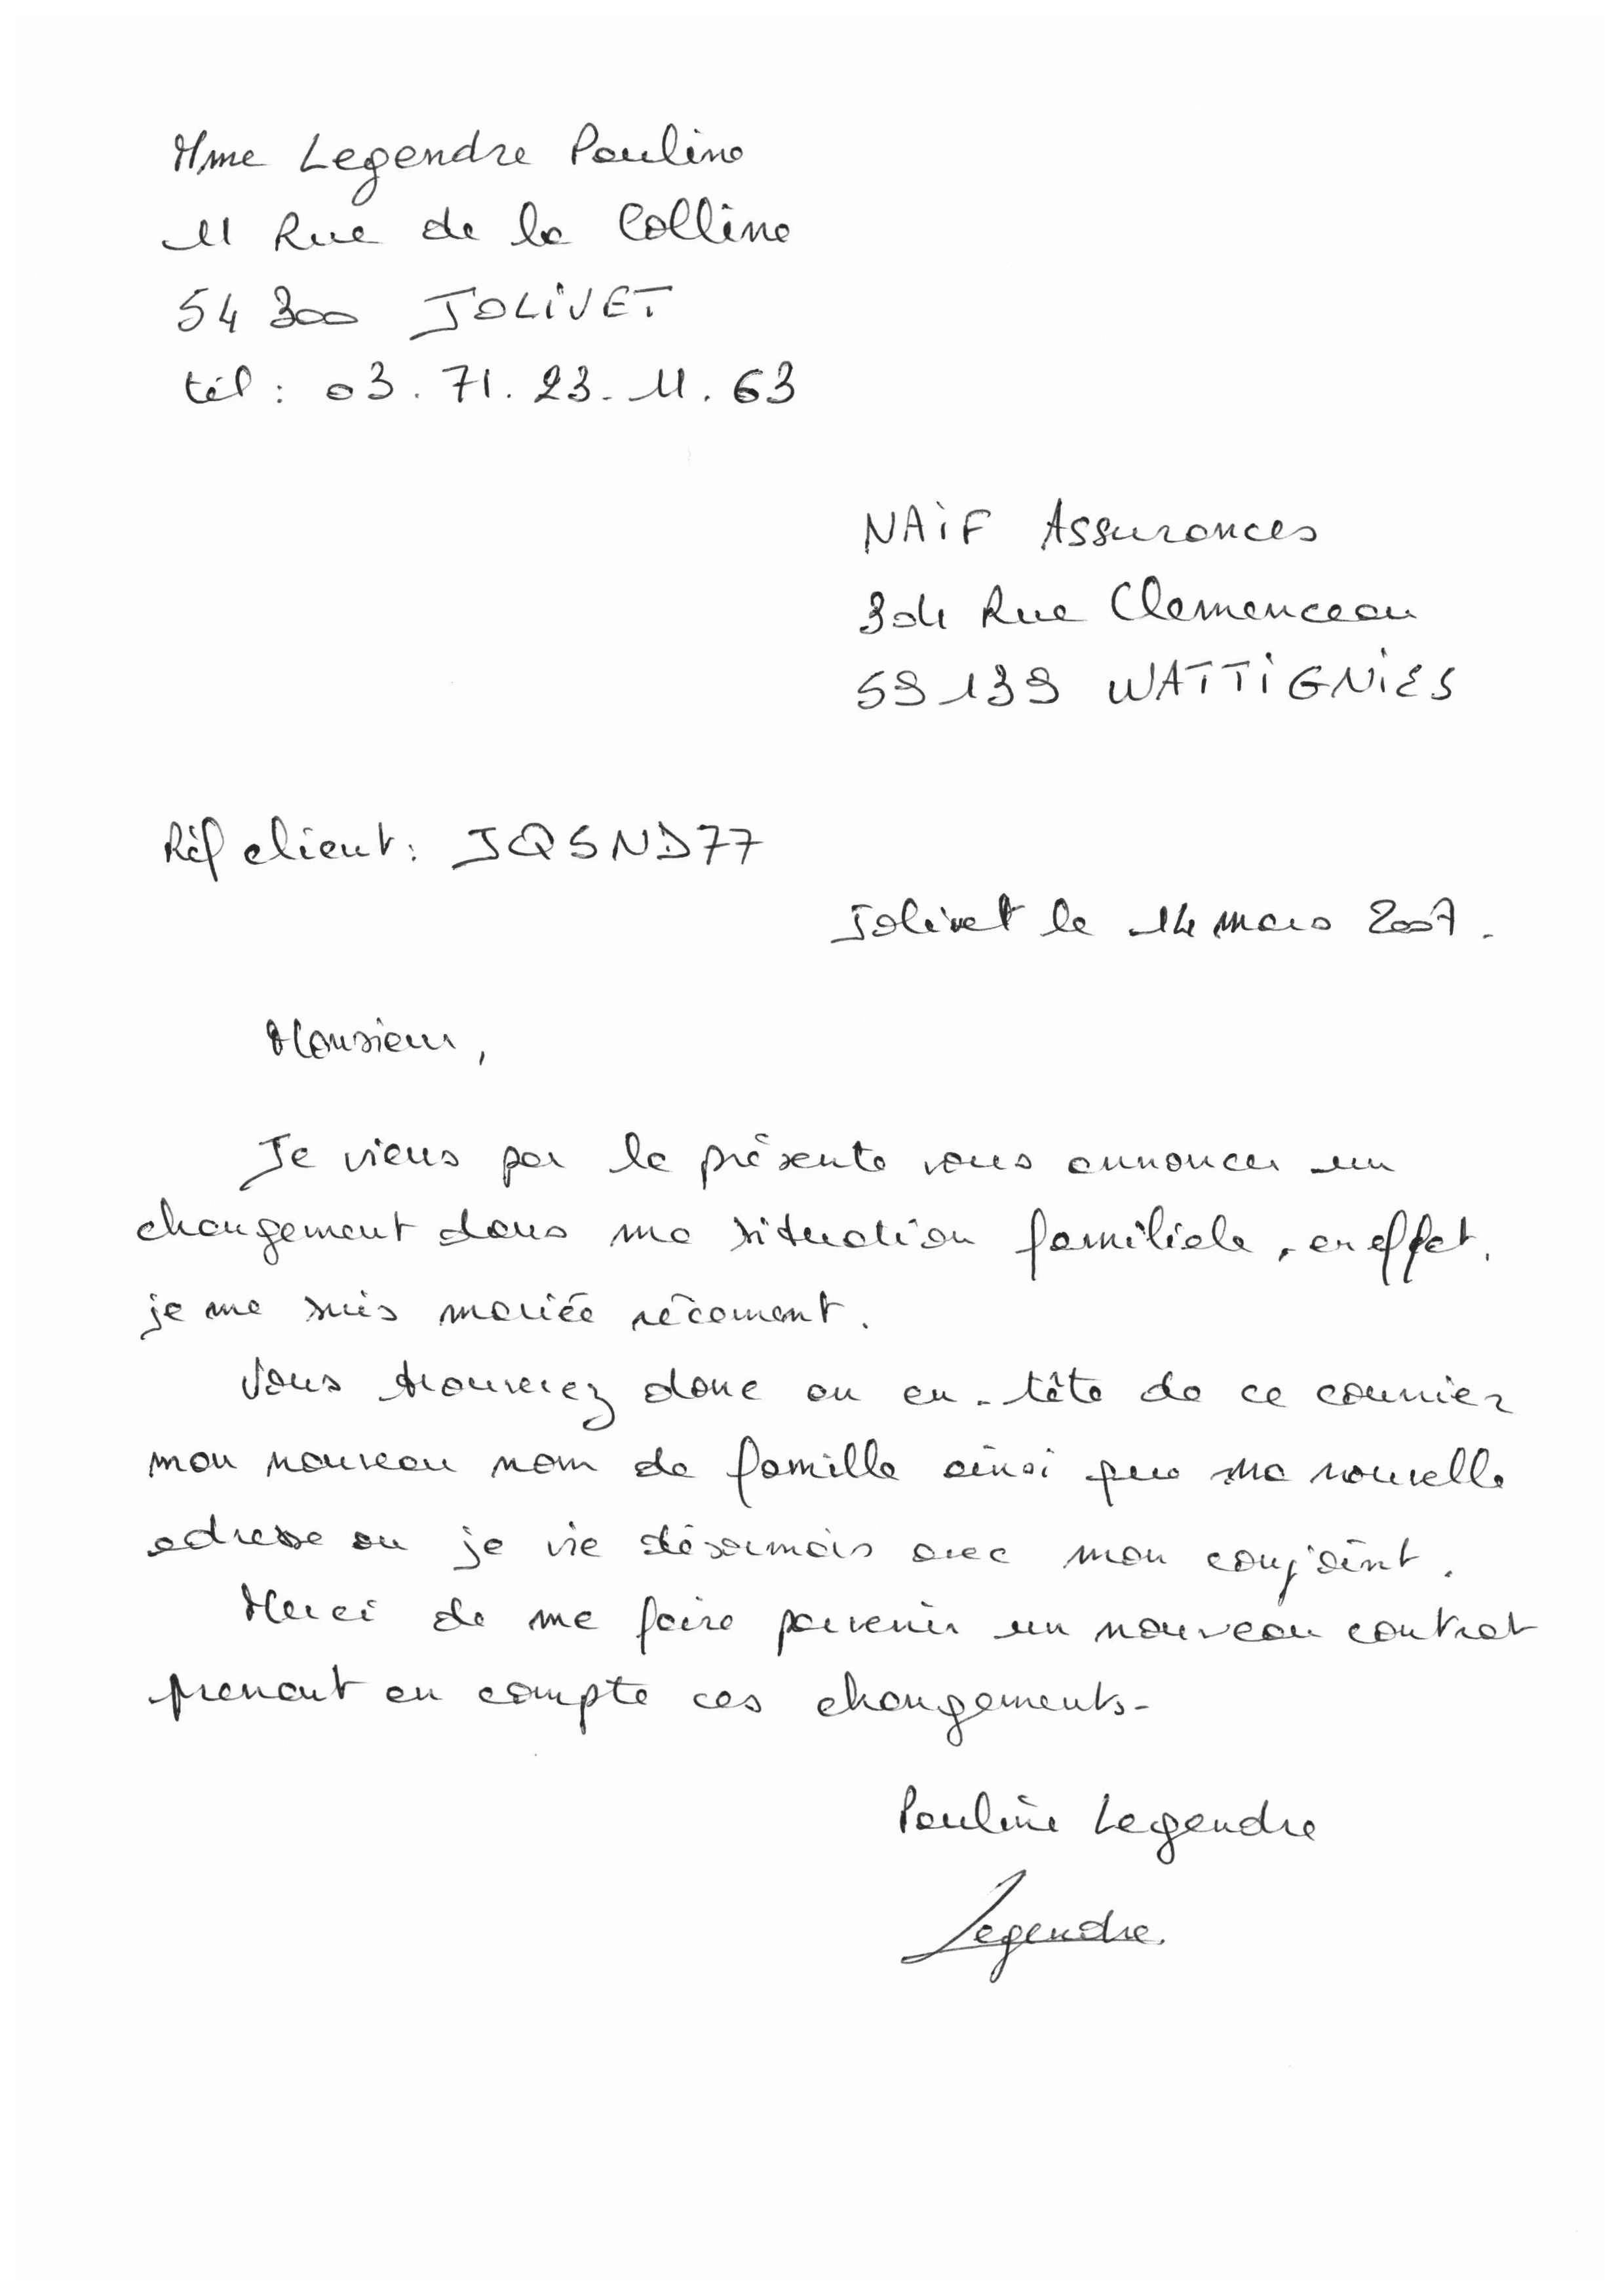 Mme Legendre Pauline
11 Rue de la Colline
54 300 JOLIVET
tél : 03. 71. 23. 11. 63
NAiF Assurances
304 Rue Clemenceau
59 139 WATTiGNiES
Réf client : JQSND77
Jolivet le 14 mars 2007.
Monsieur,
Je viens par la présente vous annoncer un
changement dans ma situation familiale, en effet,
je me suis mariée récement.
Vous trouverez donc en en-tête de ce courrier
mon nouveau nom de famille ainsi que ma nouvelle
adresse ou je vie désormais avec mon conjoint.
Merci de me faire parvenir un nouveau contrat
prenant en compte ces changements-
Pauline Legendre
Legendre.